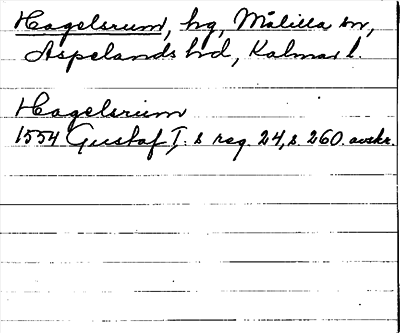 Hagelsrum, hg, Målilla sn,
Aspelands hd, Kalmar l.
Hagelsrum
1554 Gustaf I. s reg. 24, s. 260. avskr.